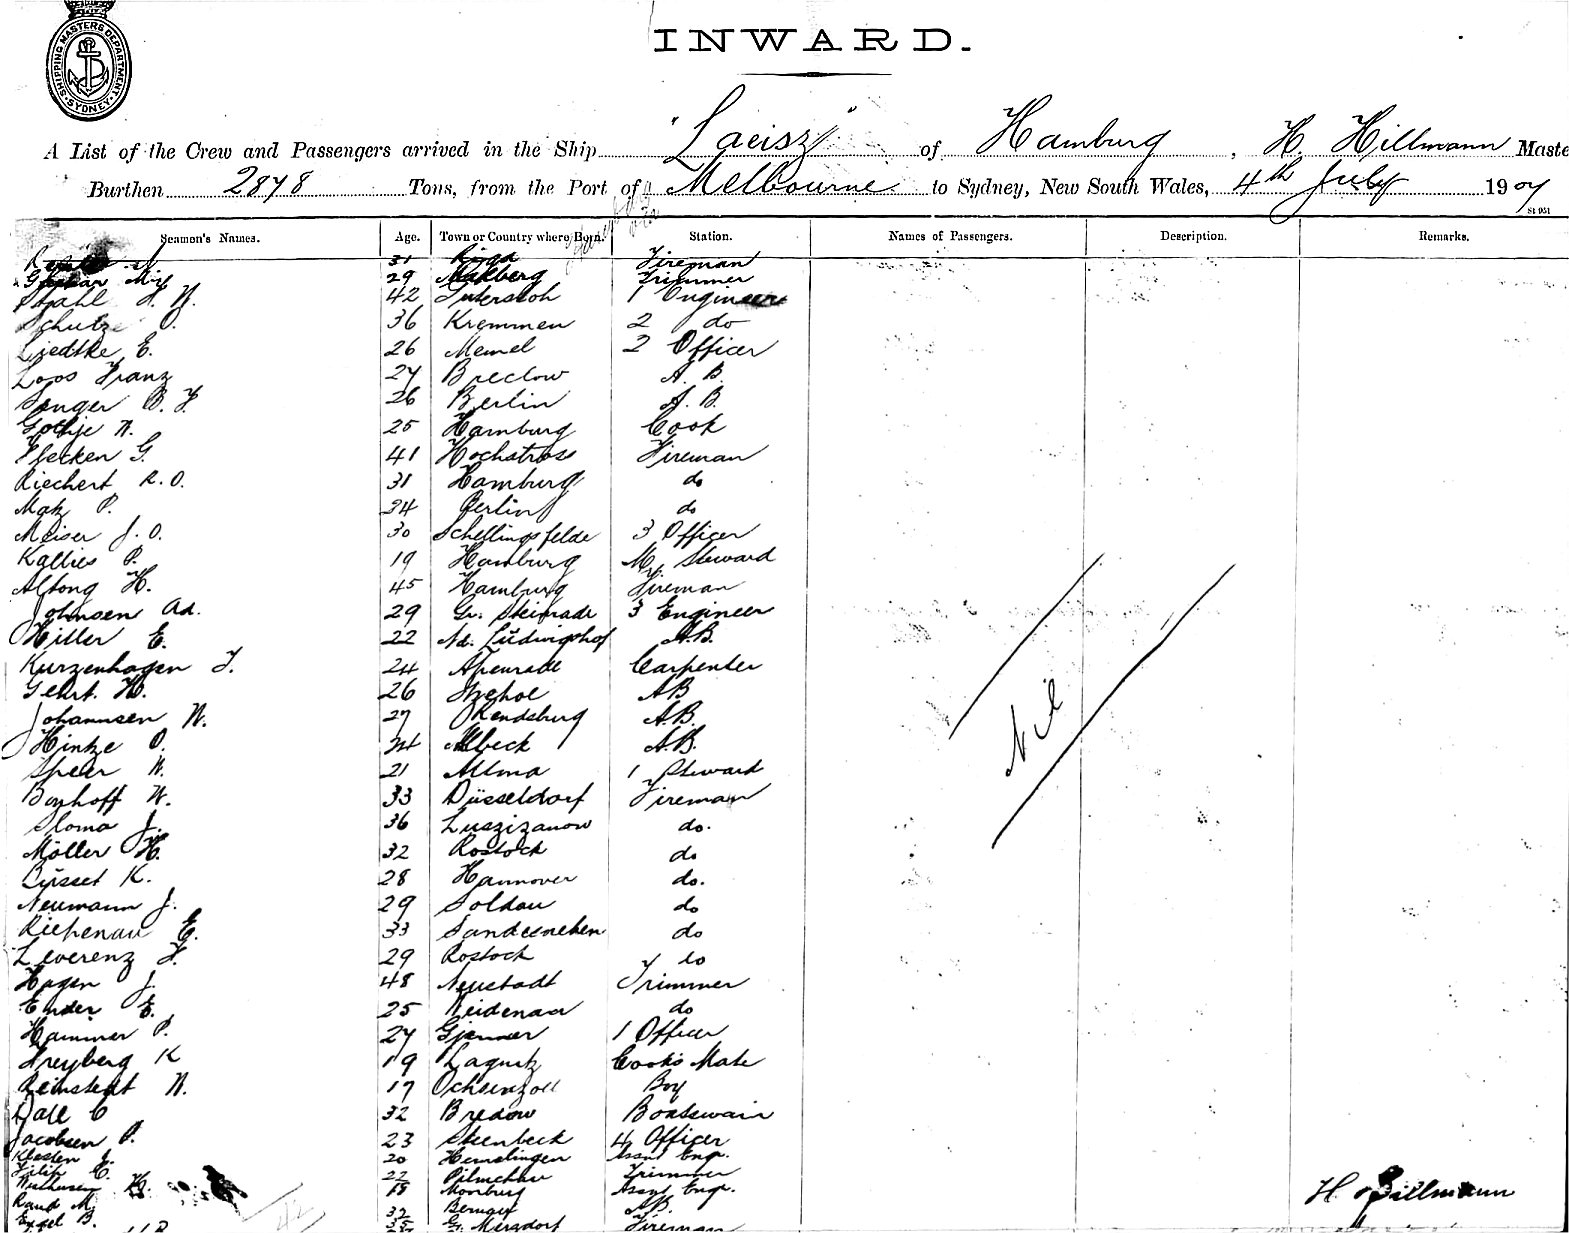 SHIPPING MASTERS DEPARTMENT SYDNEY
INWARD.
A List of the Crew and Passengers arrived in the Ship "Laeisz" of Hamburg, H. Hillmann Maste
Burthen 2878 Tons, from the Port of Melbourne to Sydney, New South Wales, 4th July 1907
St 951
Seamen's Names. Age. Town or Country where Born. Station. Names of Passengers. Description. Remarks.
31 Riga Fireman
29 Trimmer
Stahl 42 1 Engineer
Schulze O. 36 Kremmen 2 do
Liedtke E. 26 Memel 2 Officer
Loos Franz 27 Breclow A. B.
26 Berlin A. B.
Gothje W. 25 Hamburg Cook
Flecken G. 41 Hochstrass Fireman
Riechert R. O. 31 Hamburg do
P. 34 Berlin do
Meiser J. O. 30 Schellingsfelde 3 Officer
Kallies P. 19 Hamburg Steward
Altong H. 45 Hamburg Fireman
Johnsen Ad. 29 Gr. Steinrade 3 Engineer
Hiller E. 22 Nd. Lüdingshof A.B.
Kurzenhagen F. 24 Apenrade Carpenter
Gehrt. H. 26 Itzehoe AB
Johannsen W. 27 Rendsburg A.B.
Hintze O. 24 A.B.
Speer W. 21 Altona 1 Steward
Boyhoff W. 33 Düsseldorf Fireman
Sloma J. 36 Luszizanow do.
Möller H. 32 Rostock do
Büsset K. 28 Hannover do.
Neumann J. 29 Soldau do
Riepenau E. 33 Sandesneben do
Leverenz F. 29 Rostock do
Hagen J. 48 Neustadt Trimmer
Ender E. 25 Neidenau do
Hammer P. 27 Gjenner 1 Officer
Freyberg K 19 Cook's Mate
Reinstedt W. 17 Ochsenzoll Boy
Dall C 32 Bredow Boatswain
Jacobsen P. 23 Steenbeck 4 Officer
20 Hemelingen Assnt Engr.
Filip E. 22 Trimmer
H. 18 Moorburg Assnt Engr.
Rand M. 32 A.B.
B. 35 Gr. Mersdorf Fireman
Nil
H. Hillmann